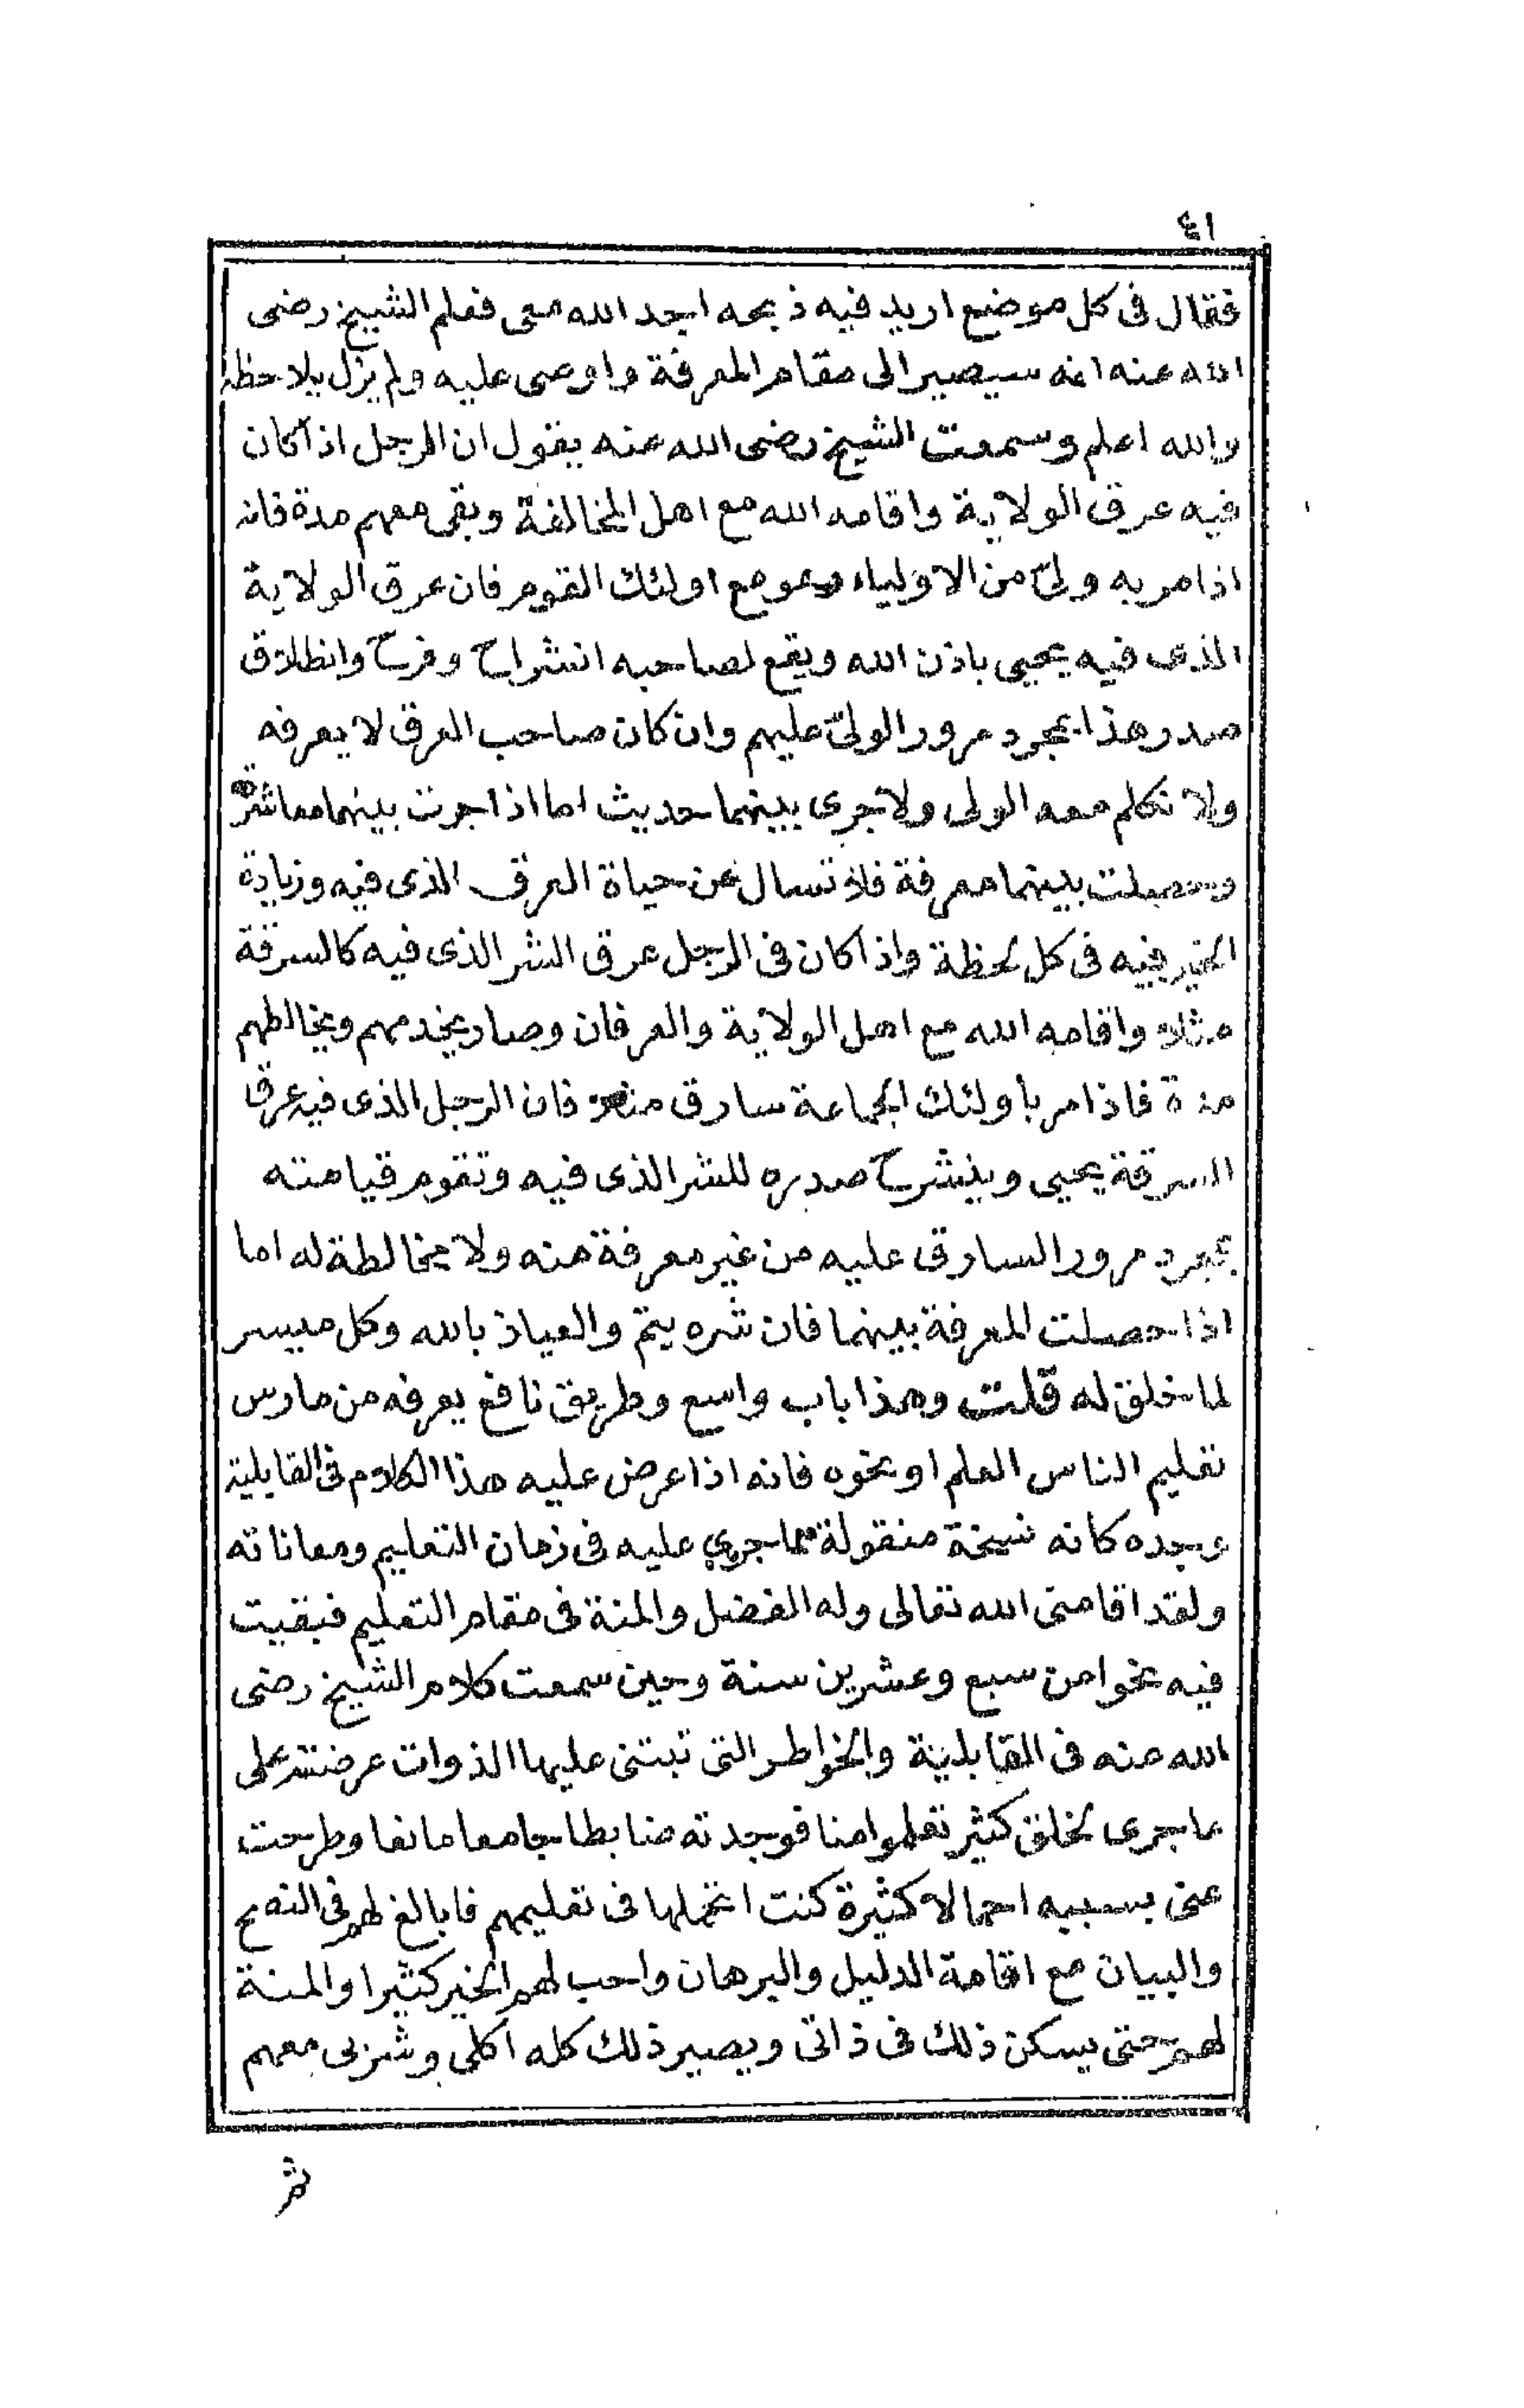 ٤١
فقال فى كل موضع اريد فيه ذبحه اجد الله معى فعلم الشيخ رضى
الله عنه انه سيصير الى مقام المعرفة واوصى عليه ولم يزل يلاحظه
والله اعلم وسمعت الشيخ رضى الله عنه يقول ان الرجل اذا كان
فيه عرق الولاية واقامه الله مع اهل المخالفة وبقى معهم مدة فانه
اذا مر به ولىّ من الاولياء وهو مع اولئك القوم فان عرق الولاية
الذى فيه يحيى باذن الله ويقع لصاحبه انشراح وفرح وانطلاق
صدر هذا بمجرد مرور الولىّ عليهم وان كان صاحب العرق لا يعرفه
ولا تكلم معه الولى ولا جرى بينهما حديث اما اذا جرت بينهما معاشرة
وحصلت بينهما معرفة فلا تسال عن حياة العرق الذى فيه وزيادة
الخير فيه فى كل لحظة واذا كان فى الرجل عرق الشر الذى فيه كالسرقة
مثلا واقامه الله مع اهل الولاية والعرفان وصار يخدمهم ويخالطهم
مدة فاذا مر بأولئك الجماعة سارق فان الرجل الذى فيه عرق
السرقة يحيى وينشرح صدره للشر الذى فيه وتقوم قيامته
بمجرد مرور السارق عليه من غير معرفة منه ولا مخالطة له اما
اذا حصلت المعرفة بينهما فان شره يتمّ والعياذ بالله وكل ميسر
لما خلق له قلت وهذا باب واسع وطريق نافع يعرفه من مارس
تعليم الناس العلم او نحوه فانه اذا عرض عليه هذا الكلام فى القابلية
وجده كانه نسخة منقولة مما جرى عليه فى زمان التعليم ومعاناته
ولقد اقامنى الله تعالى وله الفضل والمنة فى مقام التعليم فبقيت
فيه نحوا من سبع وعشرين سنة وحين سمعت كلام الشيخ رضى
الله عنه فى القابلية والخواطر التى تبتنى عليها الذوات عرضته على
ما جرى لخلق كثير تعلموا منا فوجدته ضابطا جامعا مانعا وطرحت
عنى بسببه احمالا كثيرة كنت اتحملها فى تعليمهم فابالغ لهم فى النصح
والبيان مع اقامة الدليل والبرهان واحب لهم الخير كثيرا والمنة
لهم حتى يسكن ذلك فى ذاتى ويصير ذلك كله اكلى وشربى معهم
ثم